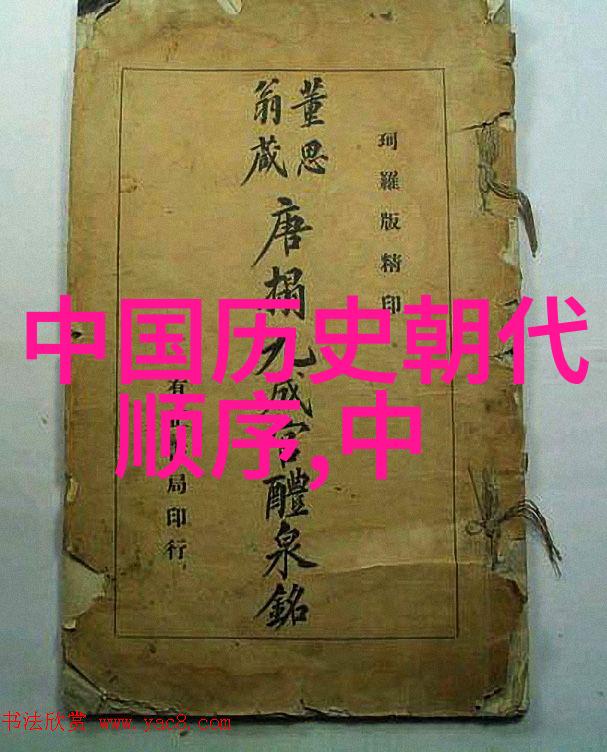 珂羅版精印
董思
翁藏
唐搨九成宮醴泉銘
有局印行
中国历史朝代
顺序,中
书法欣赏 www.yac8.com